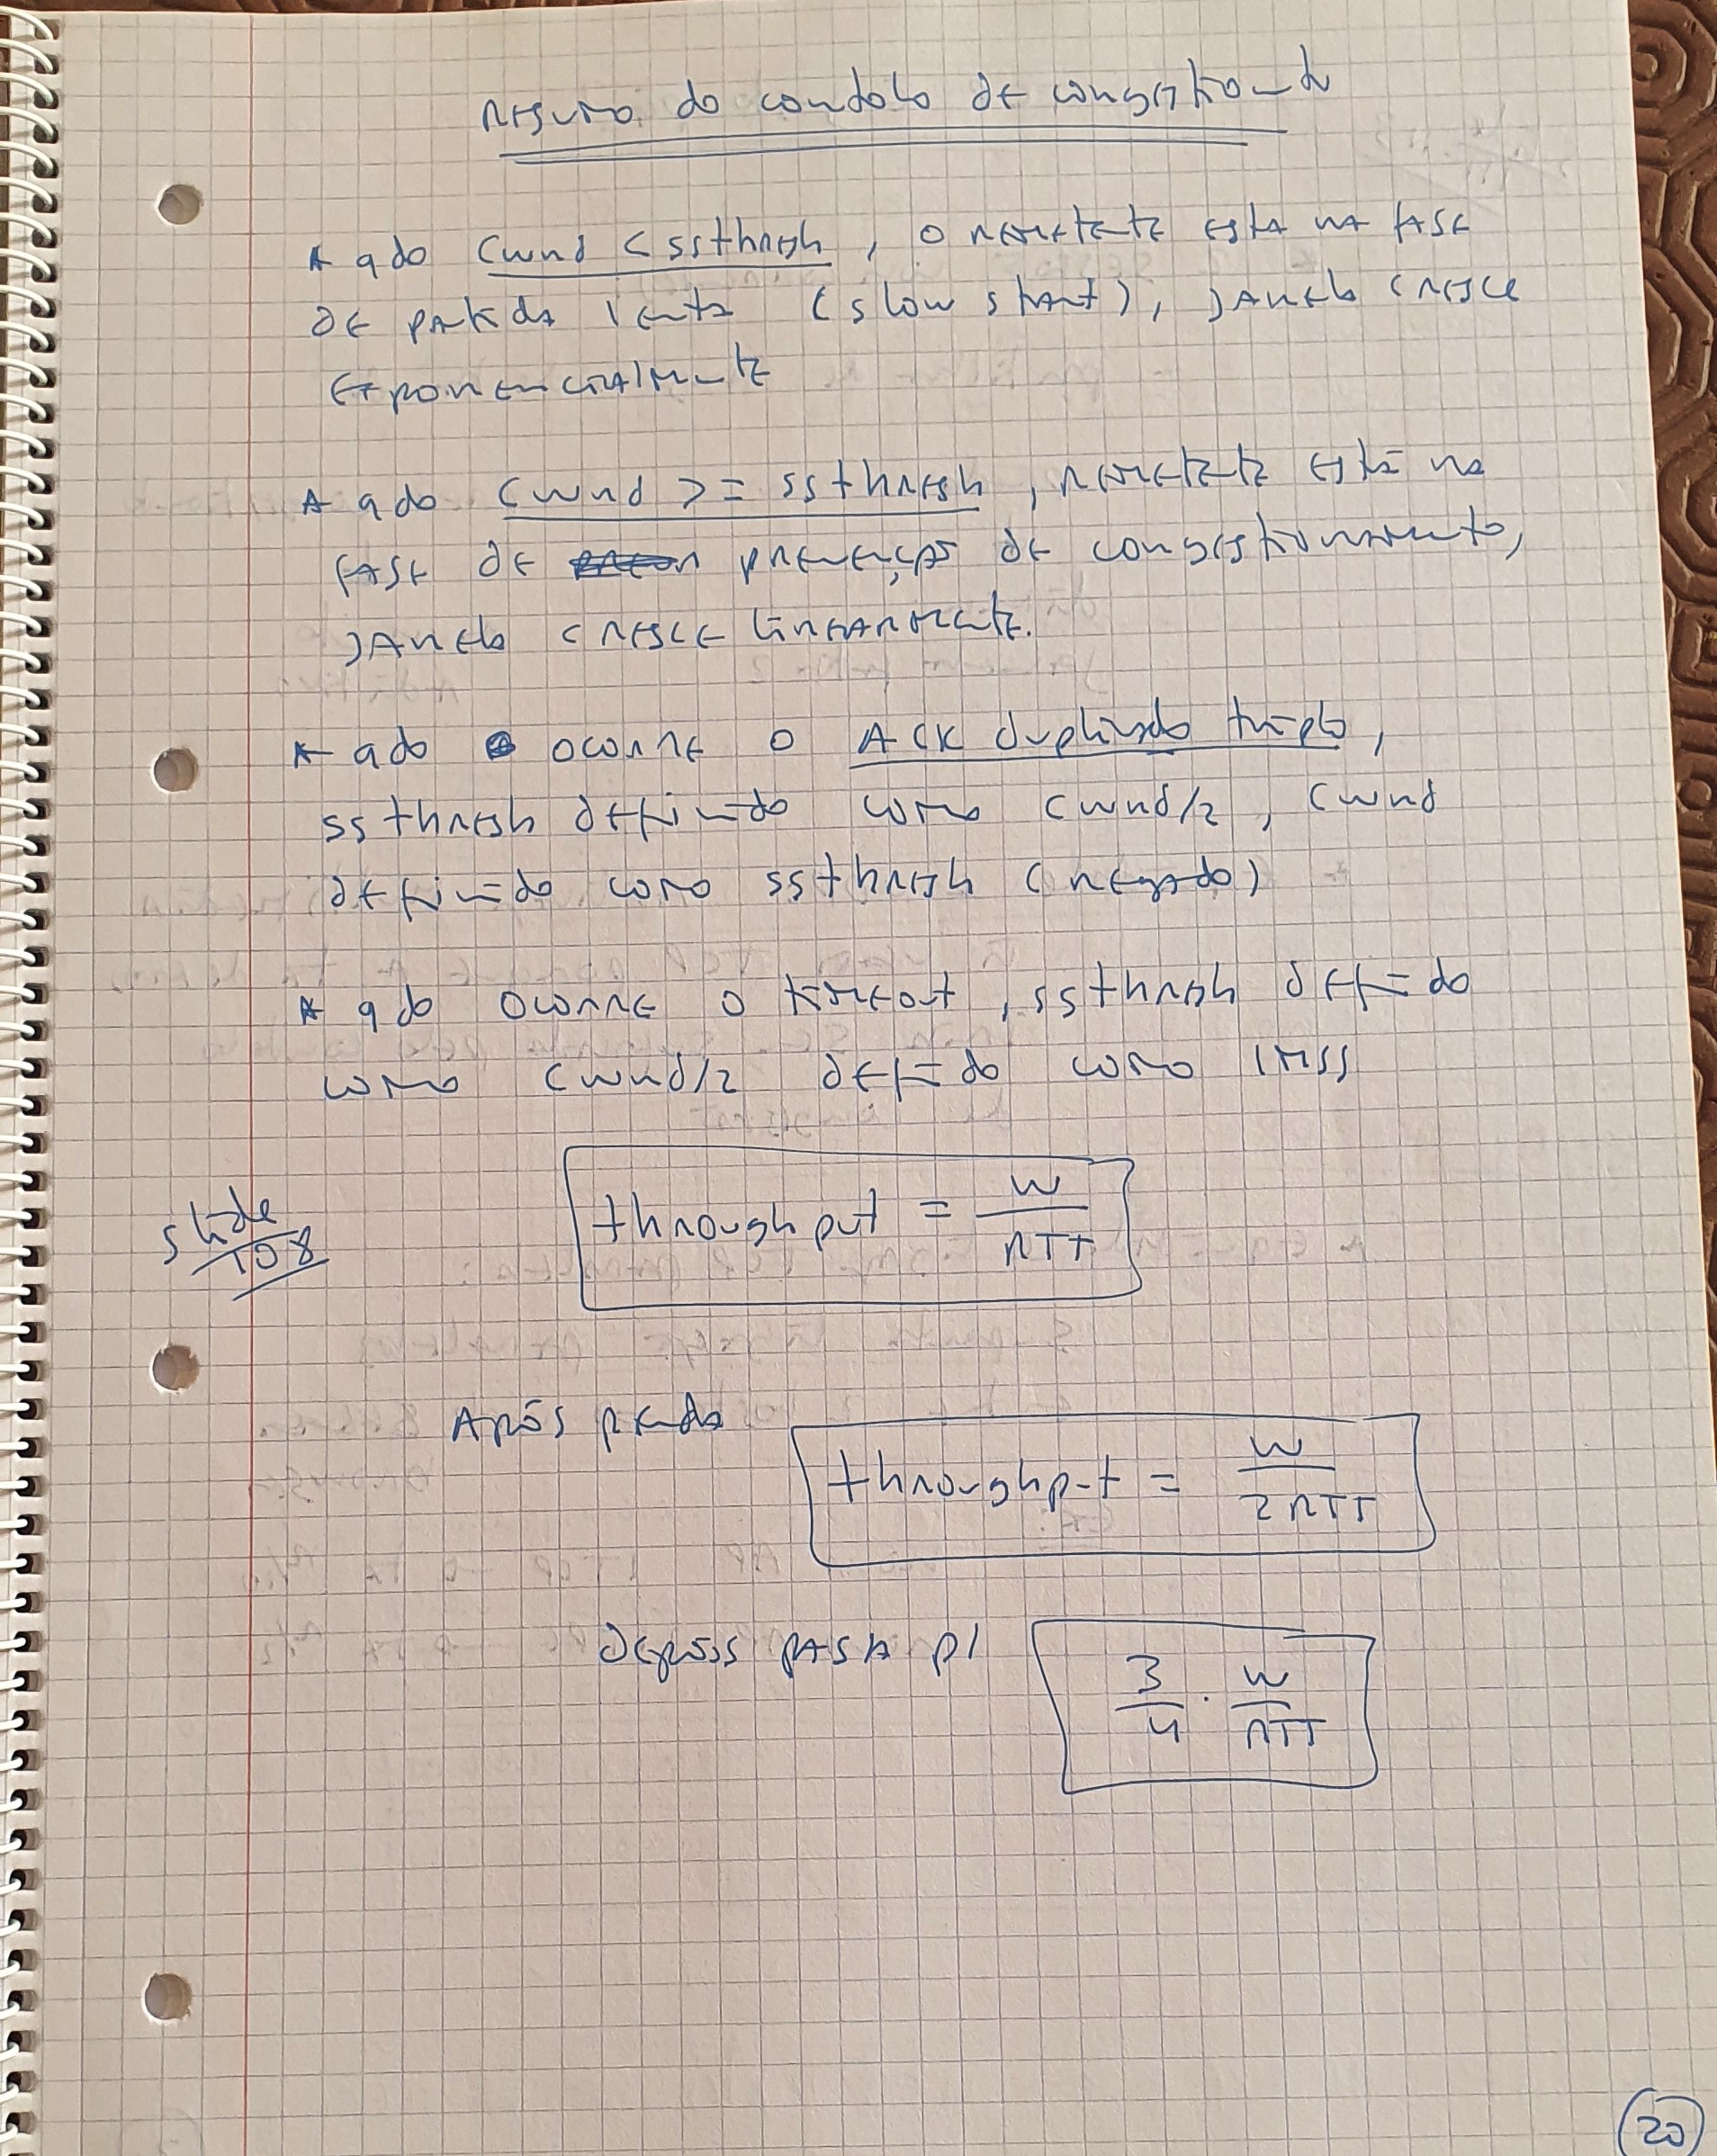 resumo do controlo de congestionando
* qdo cwnd < ssthresh, o remetente está na fase
de partida lenta (slow start), janela cresce
exponencialmente
* qdo cwnd >= ssthresh, remetente está na
fase de prevenção de congestionamento,
janela cresce linearmente.
* qdo ocorre o ACK duplicado triplo,
ssthresh definido como cwnd/2, cwnd
definido como ssthresh
* qdo ocorre o timeout, ssthresh definido
como cwnd/2 definido como 1MSS
slide
108
throughput = W / RTT
Após perda
throughput = W / 2RTT
depois passa p/
3/4 . W/RTT
20